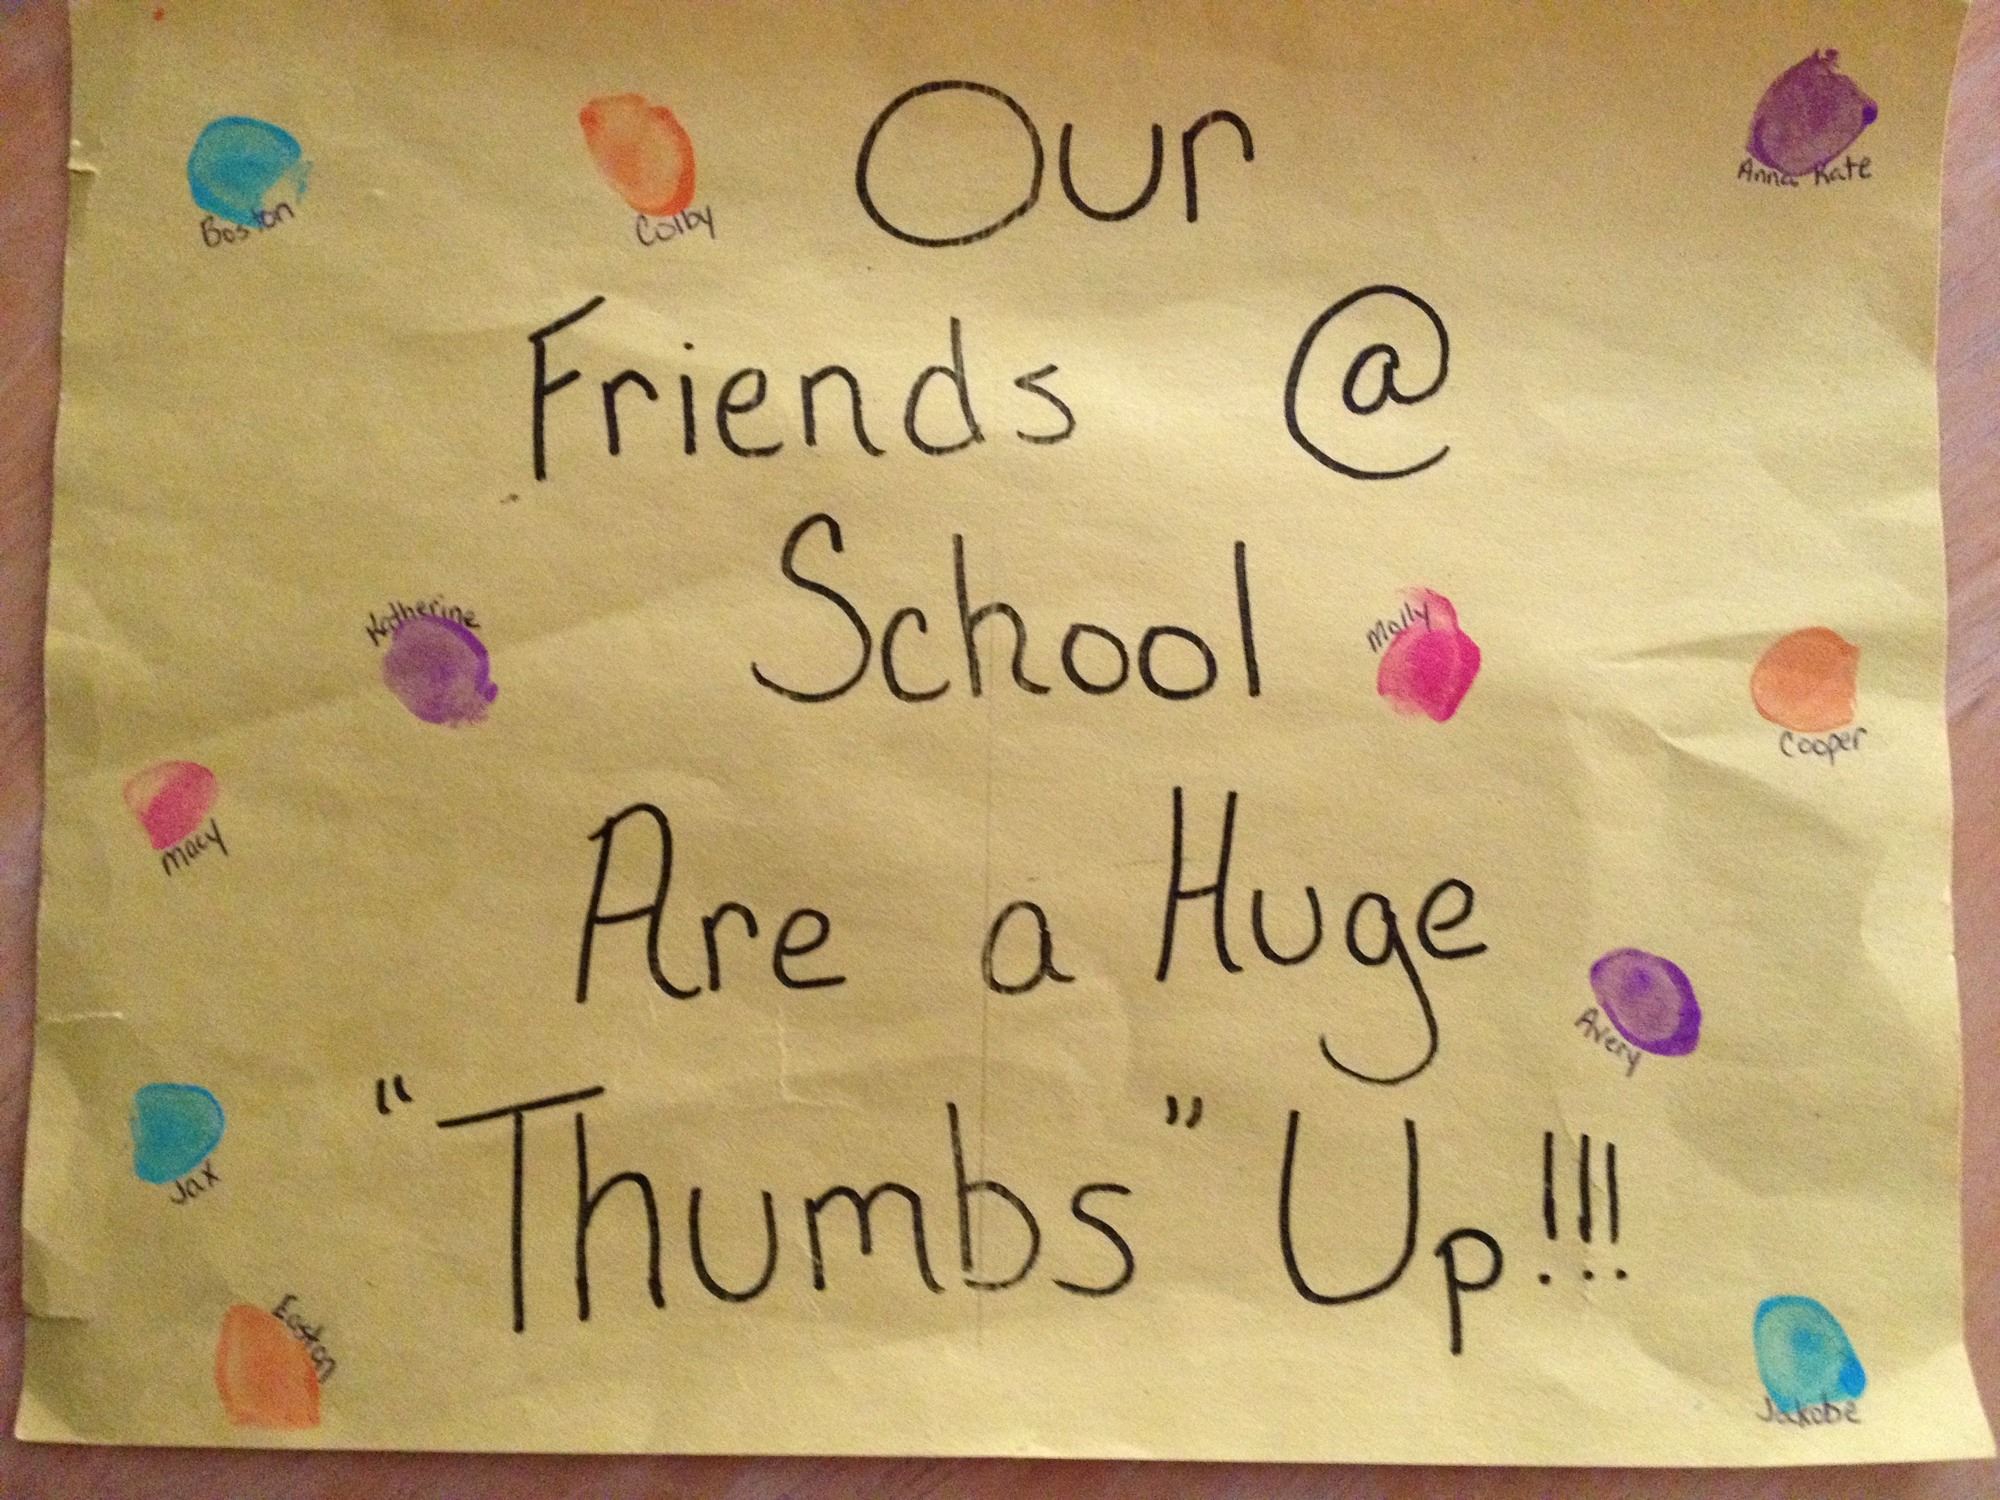 Our
Boston
Colby
Anna Kate
Friends @
School
Katherine
Molly
Cooper
Macy
Are a Huge
Avery
"Thumbs" Up!!!
Jax
Easton
Jakobe